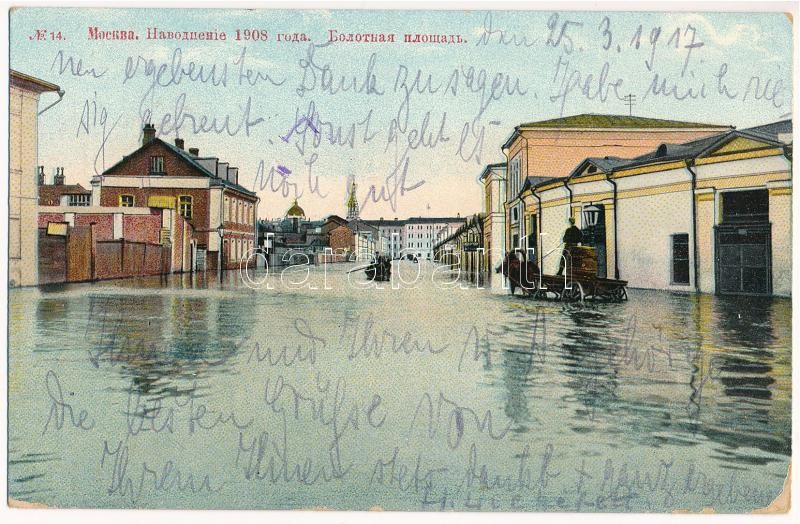 № 14. Москва. Наводненіе 1908 года. Болотная площадь.
den 25. 3. 1917
nen ergebensten Dank zu sagen. Habe mich rie
sig gefreut. Sonst geht es
noch gut
darabanth
Ihnen und Ihren w. Angehörige
die besten Grüße von
Ihrem Ihnen stets dankb. + ganz ergebenen